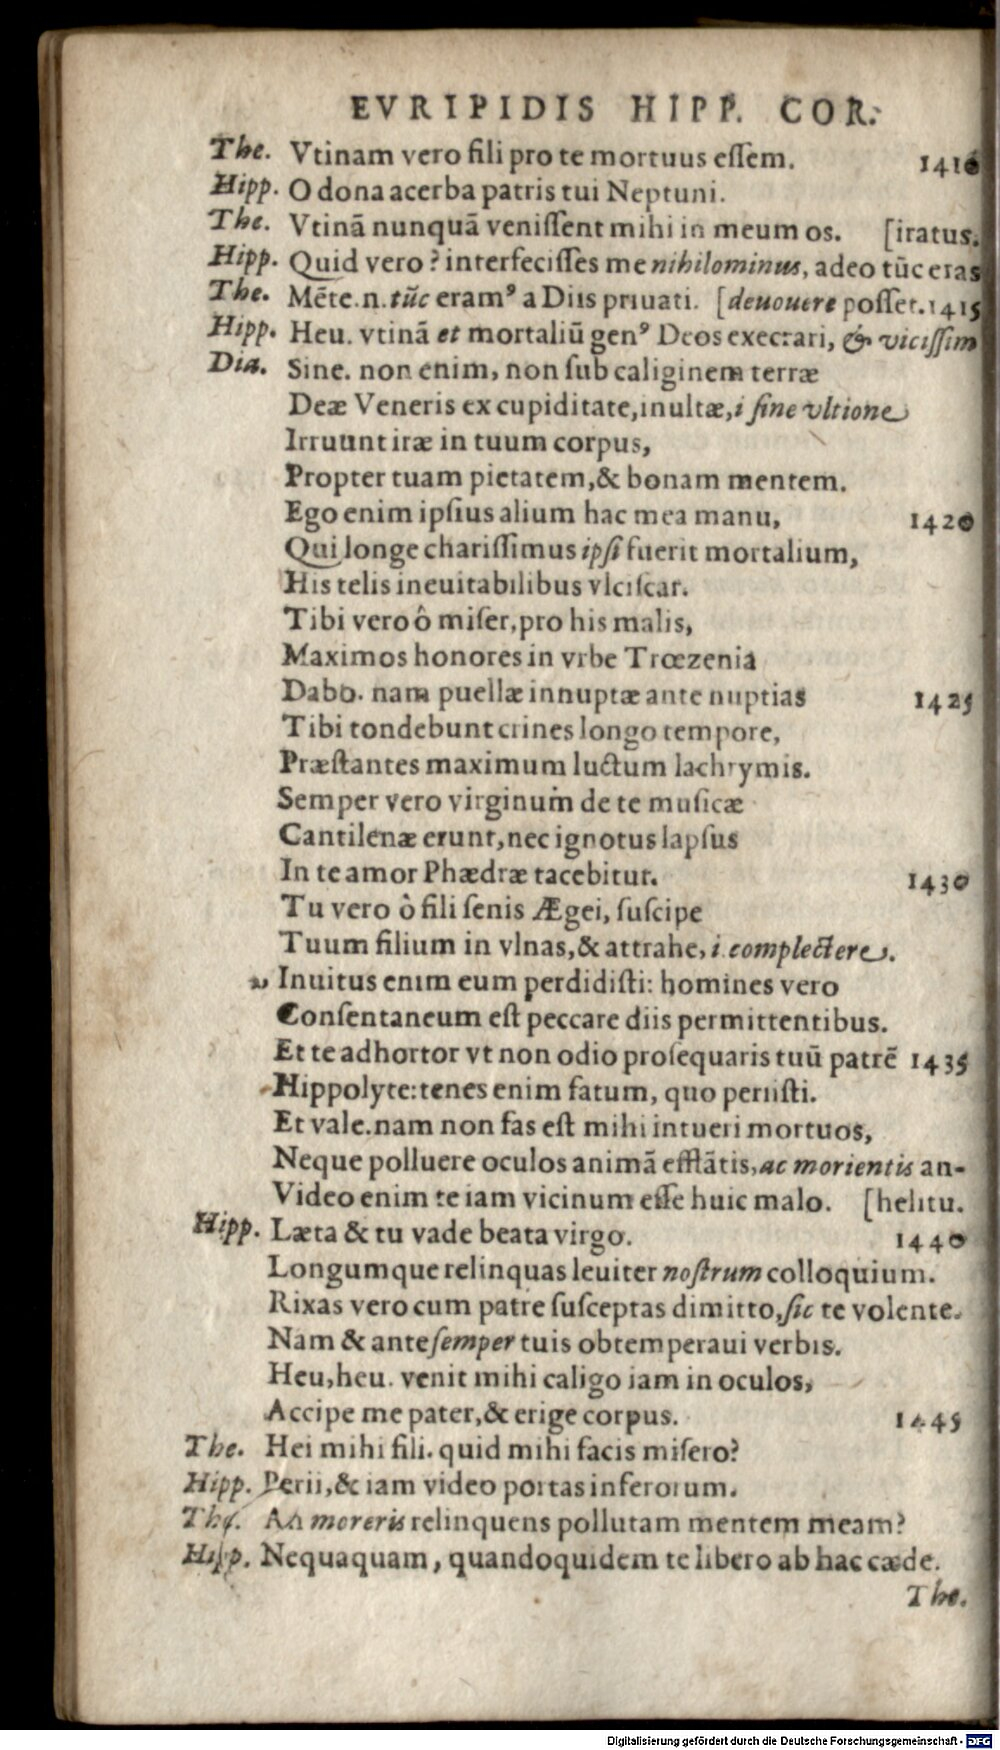 EVRIPIDIS HIPP. COR.
The. Vtinam vero fili pro te mortuus eſſem. 1410
Hipp. O dona acerba patris tui Neptuni.
The. Vtinā nunquā veniſſent mihi in meum os. [iratus.
Hipp. Quid vero? interfeciſſes me nihilominus, adeo tūc eras
The. Mēte.n.tūc eramꝰ a Diis priuati. [deuouere poſſet. 1415
Hipp. Heu. vtinā et mortaliū genꝰ Deos execrari, & viciſſim
Dia. Sine. non enim, non ſub caliginem terræ
Deæ Veneris ex cupiditate, inultæ, i ſine vltione
Irruunt iræ in tuum corpus,
Propter tuam pietatem, & bonam mentem.
Ego enim ipſius alium hac mea manu, 1420
Qui longe chariſſimus ipſi fuerit mortalium,
His telis ineuitabilibus vlciſcar.
Tibi vero ô miſer, pro his malis,
Maximos honores in vrbe Trœzenia
Dabo. nam puellæ innuptæ ante nuptias 1425
Tibi tondebunt crines longo tempore,
Præſtantes maximum luctum lachrymis.
Semper vero virginum de te muſicæ
Cantilenæ erunt, nec ignotus lapſus
In te amor Phædræ tacebitur. 1430
Tu vero ô fili ſenis Ægei, ſuſcipe
Tuum filium in vlnas, & attrahe, i. complectere.
„ Inuitus enim eum perdidiſti: homines vero
Conſentaneum eſt peccare diis permittentibus.
Et te adhortor vt non odio proſequaris tuū patrē 1435
Hippolyte: tenes enim fatum, quo periiſti.
Et vale. nam non fas eſt mihi intueri mortuos,
Neque polluere oculos animā efflātis, ac morientis an-
Video enim te iam vicinum eſſe huic malo. [helitu.
Hipp. Læta & tu vade beata virgo. 1440
Longumque relinquas leuiter noſtrum colloquium.
Rixas vero cum patre ſuſceptas dimitto, ſic te volente.
Nam & ante ſemper tuis obtemperaui verbis.
Heu, heu. venit mihi caligo iam in oculos,
Accipe me pater, & erige corpus. 1445
The. Hei mihi fili. quid mihi facis miſero?
Hipp. Perii, & iam video portas inferorum.
The. An moreris relinquens pollutam mentem meam?
Hipp. Nequaquam, quandoquidem te libero ab hac cæde.
The.
Digitalisierung gefördert durch die Deutsche Forschungsgemeinschaft - DFG